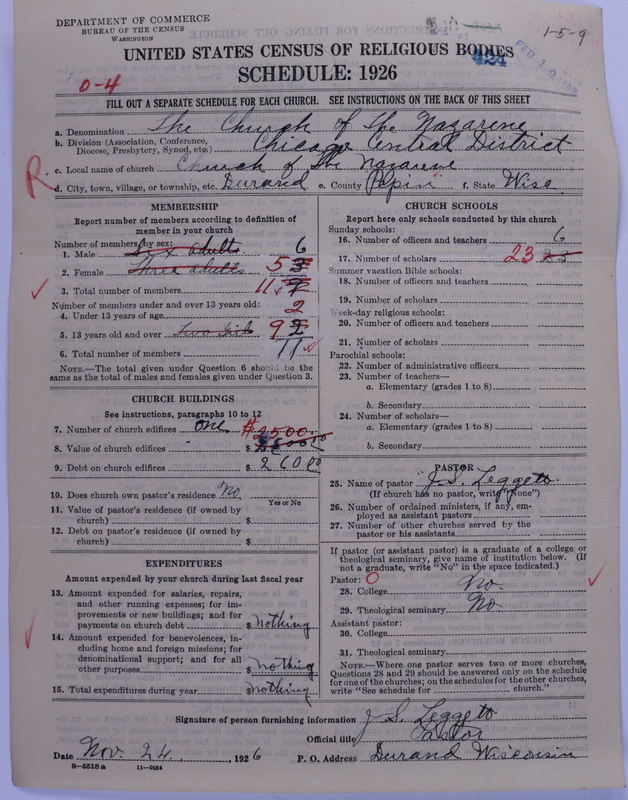 DEPARTMENT OF COMMERCE
BUREAU OF THE CENSUS
WASHINGTON
1-5-9
UNITED STATES CENSUS OF RELIGIOUS BODIES
SCHEDULE: 1926
0-4
FILL OUT A SEPARATE SCHEDULE FOR EACH CHURCH. SEE INSTRUCTIONS ON THE BACK OF THIS SHEET
a. Denomination The Church of the Nazarene
b. Division (Association, Conference, Diocese, Presbytery, Synod, etc.) Chicago Central District
R
c. Local name of church Church of the Nazarene
d. City, town, village, or township, etc. Durand e. County Pepin f. State Wisc.
MEMBERSHIP
Report number of members according to definition of
member in your church
Number of members by sex:
1. Male Six adults 6
2. Female Three adults 5
3. Total number of members 11
Number of members under and over 13 years old:
4. Under 13 years of age 2
5. 13 years old and over Two Girls 9
6. Total number of members 11
NOTE.—The total given under Question 6 should be the
same as the total of males and females given under Question 3.
CHURCH BUILDINGS
See instructions, paragraphs 10 to 12
7. Number of church edifices one
8. Value of church edifices $ 2500
9. Debt on church edifices $ 2600 00
10. Does church own pastor's residence No
Yes or No
11. Value of pastor's residence (if owned by
church) $
12. Debt on pastor's residence (if owned by
church) $
EXPENDITURES
Amount expended by your church during last fiscal year
13. Amount expended for salaries, repairs,
and other running expenses; for im-
provements or new buildings; and for
payments on church debt $ nothing
14. Amount expended for benevolences, in-
cluding home and foreign missions; for
denominational support; and for all
other purposes $ nothing
15. Total expenditures during year $ nothing
CHURCH SCHOOLS
Report here only schools conducted by this church
Sunday schools:
16. Number of officers and teachers 6
17. Number of scholars 23
Summer vacation Bible schools:
18. Number of officers and teachers
19. Number of scholars
Week-day religious schools:
20. Number of officers and teachers
21. Number of scholars
Parochial schools:
22. Number of administrative officers
23. Number of teachers—
a. Elementary (grades 1 to 8)
b. Secondary
24. Number of scholars—
a. Elementary (grades 1 to 8)
b. Secondary
PASTOR
25. Name of pastor J. S. Leggett
(If church has no pastor, write "None")
26. Number of ordained ministers, if any, em-
ployed as assistant pastors
27. Number of other churches served by the
pastor or his assistants
If pastor (or assistant pastor) is a graduate of a college or
theological seminary, give name of institution below. (If
not a graduate, write "No" in the space indicated.)
Pastor: 0
28. College No
29. Theological seminary No
Assistant pastor:
30. College
31. Theological seminary
NOTE.—Where one pastor serves two or more churches,
Questions 28 and 29 should be answered only on the schedule
for one of the churches; on the schedules for the other churches,
write "See schedule for church."
Signature of person furnishing information J. S. Leggett
Official title Pastor
Date Nov. 24, 1926 P. O. Address Durand Wisconsin
8—5518 a 11—9034